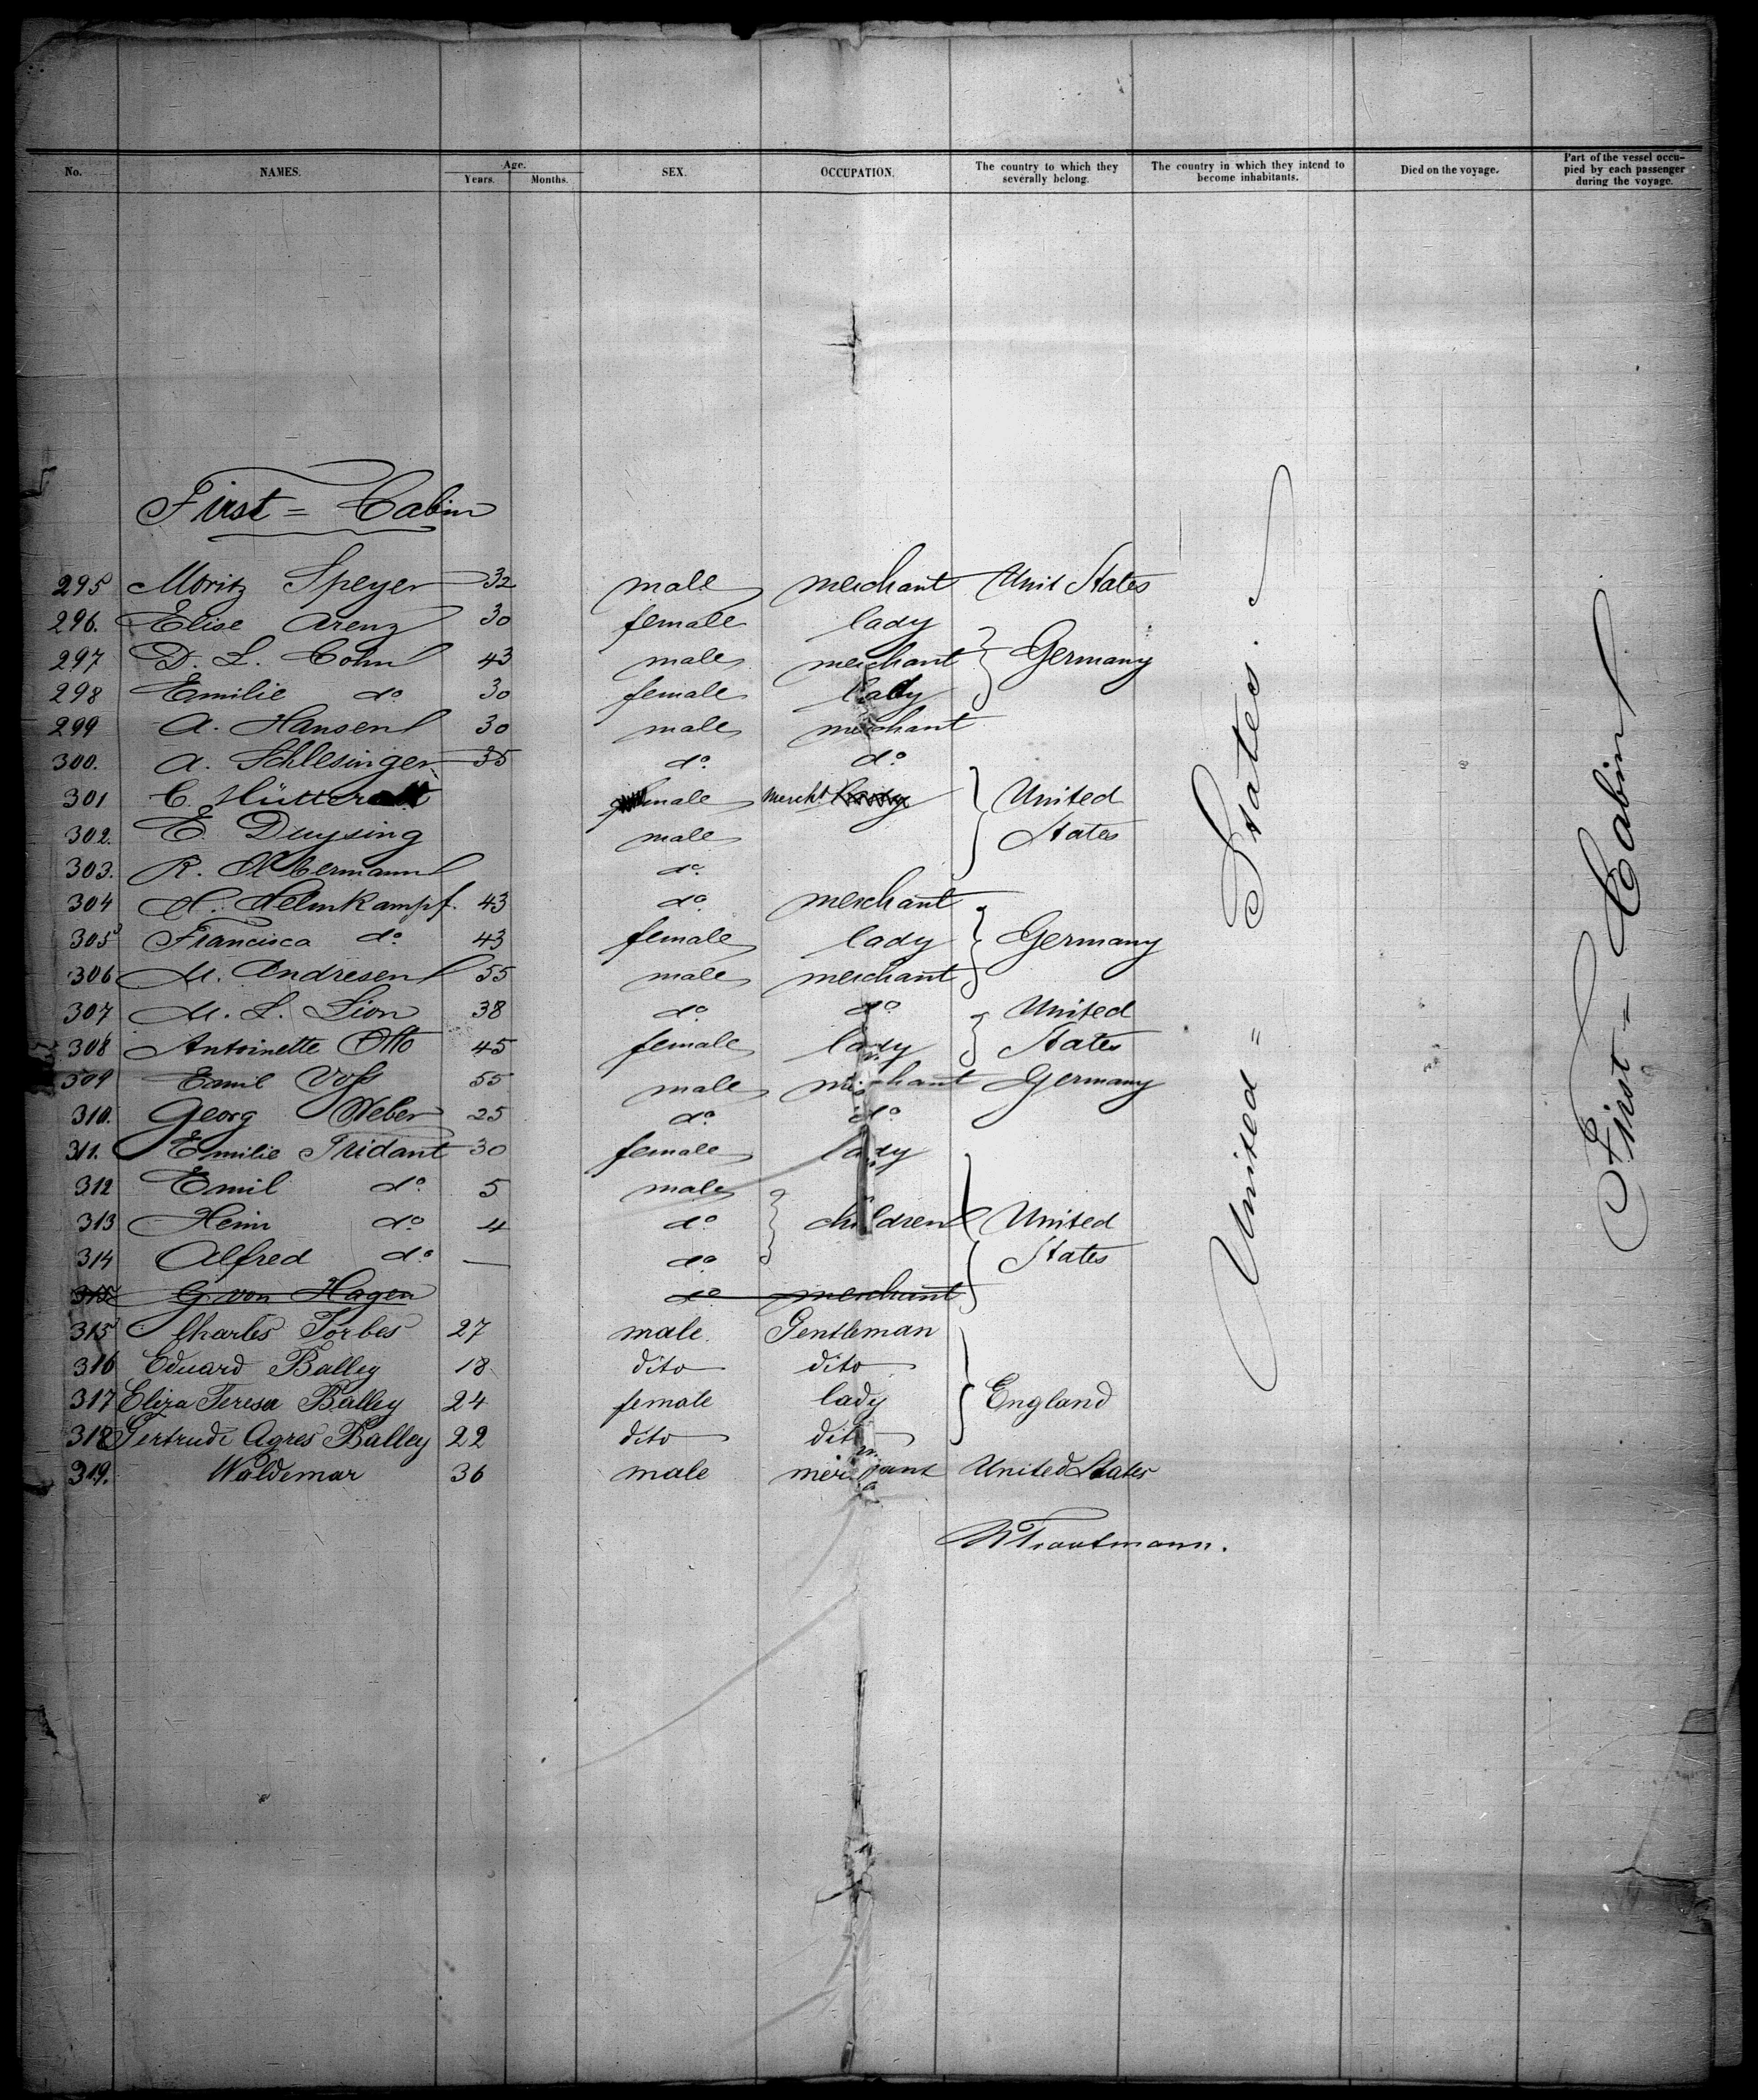 No. NAMES. Age. Years. Months. SEX. OCCUPATION. The country to which they severally belong. The country in which they intend to become inhabitants. Died on the voyage. Part of the vessel occupied by each passenger during the voyage.
First = Cabin
295 Moritz Speyer 32 male merchant Unit States
296. Elise Arenz 30 female lady
297 D. L. Cohn 43 male merchant Germany
298 Emilie do 30 female lady
299 A. Hansen 30 male merchant
300. A. Schlesinger 35 do. do.
301 C. male Mercht lady United
302. E. Duysing male States
303. R. do.
304 H. Helmkampf. 43 do. merchant
305 Francisca do. 43 female lady Germany
306 M. Andresen 55 male merchant
307 M. L. Lion 38 do. do United
308 Antoinette Otto 45 female lady States
309 Emil Voſs 55 male merchant Germany
310. Georg Weber 25 do. do
311. Emilie Tridant 30 female lady
312 Emil do. 5 male
313 Heinr do. 4 do. children United
314 Alfred do. — do. States
315 G. von Hagen do merchant
315 Charles Forbes 27 male. Gentleman
316 Eduard Balley 18 dito dito
317 Eliza Teresa Balley 24 female lady England
318 Gertrude Agnes Balley 22 dito dito
319. Waldemar 36 male merchant United States
United = States.
First = Cabin
Trautmann.